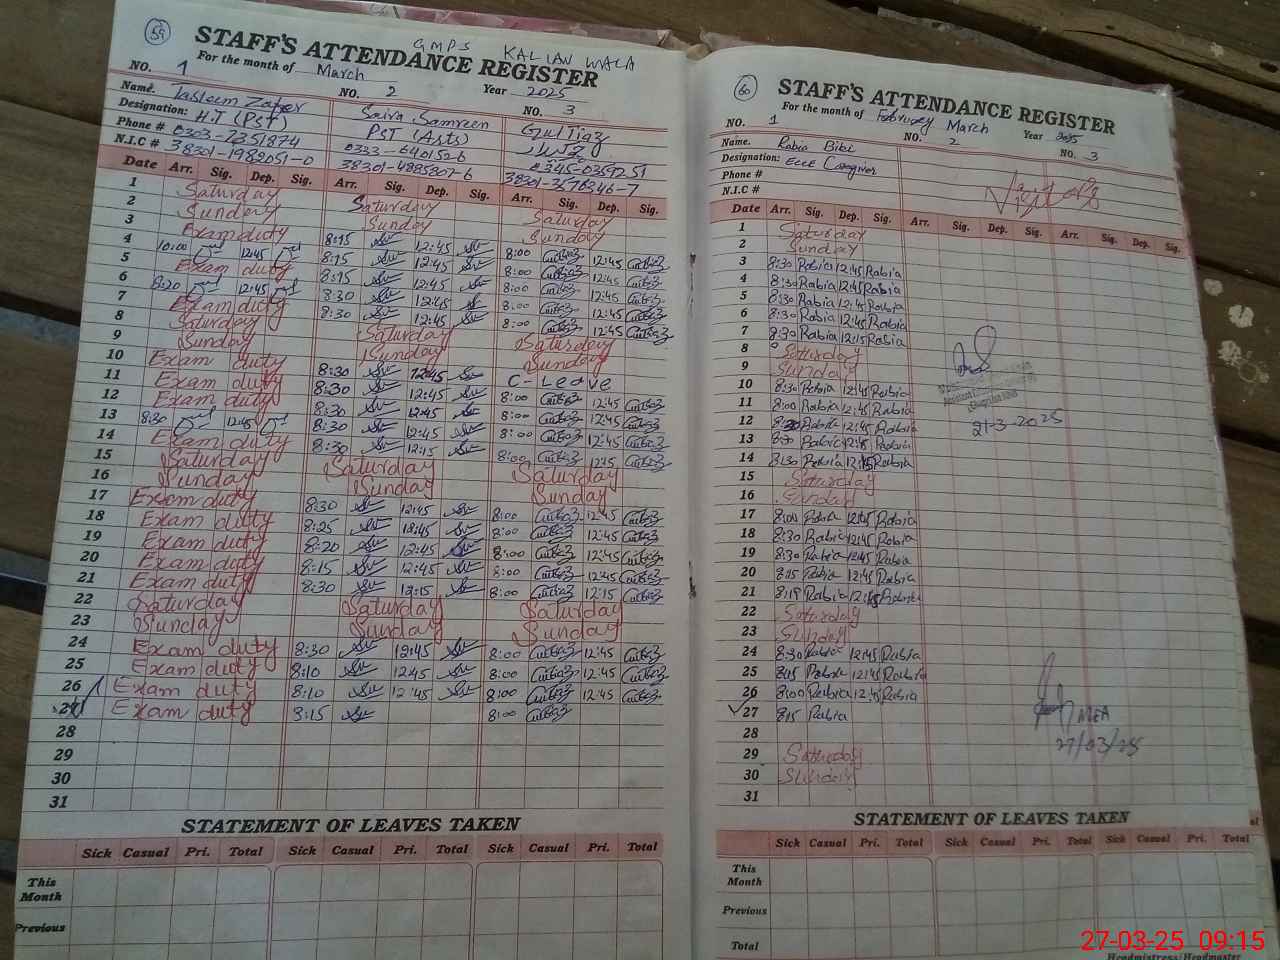 59
GMPS KALIAN WALA
STAFF'S ATTENDANCE REGISTER
For the month of March Year 2025
NO. 1 NO. 2 NO. 3
Name. Tasleem Zafar Saira Samreen Gul Tiaz
Designation: H.T (PST) PST (Arts)
Phone # 0303-7351874 0333-6401526 0345-0359251
N.I.C # 38301-1982051-0 38301-4885807-6 38301-3576346-7
Date Arr. Sig. Dep. Sig. Arr. Sig. Dep. Sig. Arr. Sig. Dep. Sig.
1 Saturday Saturday Saturday
2 Sunday Sunday Sunday
3 Exam duty 8:15 12:45 8:00 12:45
4 10:00 12:45 8:15 12:45 8:00 12:45
5 Exam duty 8:15 12:45 8:00 12:45
6 8:20 12:45 8:30 12:45 8:00 12:45
7 Exam duty 8:30 12:45 8:00 12:45
8 Saturday Saturday Saturday
9 Sunday Sunday Sunday
10 Exam duty 8:30 12:45 C-Leave
11 Exam duty 8:30 12:45 8:00 12:45
12 Exam duty 8:30 12:45 8:00 12:45
13 8:30 12:45 8:30 12:45 8:00 12:45
14 Exam duty 8:30 12:15 8:00 12:15
15 Saturday Saturday Saturday
16 Sunday Sunday Sunday
17 Exam duty 8:30 12:45 8:00 12:45
18 Exam duty 8:25 12:45 8:00 12:45
19 Exam duty 8:20 12:45 8:00 12:45
20 Exam duty 8:15 12:45 8:00 12:45
21 Exam duty 8:30 12:15 8:00 12:15
22 Saturday Saturday Saturday
23 Sunday Sunday Sunday
24 Exam duty 8:30 12:45 8:00 12:45
25 Exam duty 8:10 12:45 8:00 12:45
26 Exam duty 8:10 12:45 8:00 12:45
27 Exam duty 8:15 8:00
28
29
30
31
STATEMENT OF LEAVES TAKEN
Sick Casual Pri. Total Sick Casual Pri. Total Sick Casual Pri. Total
This Month
Previous
60
STAFF'S ATTENDANCE REGISTER
For the month of February March Year 2025
NO. 1 NO. 2 NO. 3
Name. Rabia Bibi
Designation: ECCE Caregiver
Phone #
N.I.C #
Visitors
Date Arr. Sig. Dep. Sig. Arr. Sig. Dep. Sig. Arr. Sig. Dep. Sig.
1 Saturday
2 Sunday
3 8:30 Rabia 12:45 Rabia
4 8:30 Rabia 12:45 Rabia
5 8:30 Rabia 12:45 Rabia
6 8:30 Rabia 12:45 Rabia
7 8:30 Rabia 12:15 Rabia
8 Saturday
9 Sunday
10 8:30 Rabia 12:45 Rabia
11 8:00 Rabia 12:45 Rabia
12 8:30 Rabia 12:45 Rabia
21-3-2025
13 8:30 Rabia 12:45 Rabia
14 8:30 Rabia 12:15 Rabia
15 Saturday
16 Sunday
17 8:00 Rabia 12:45 Rabia
18 8:30 Rabia 12:45 Rabia
19 8:30 Rabia 12:45 Rabia
20 8:15 Rabia 12:45 Rabia
21 8:19 Rabia 12:15 Rabia
22 Saturday
23 Sunday
24 8:30 Rabia 12:45 Rabia
25 8:15 Rabia 12:45 Rabia
26 8:00 Rabia 12:45 Rabia
27 8:15 Rabia
MEA
27/03/25
28
29 Saturday
30 Sunday
31
STATEMENT OF LEAVES TAKEN
Sick Casual Pri. Total Sick Casual Pri. Total Sick Casual Pri. Total
This Month
Previous
Total
Headmistress/Headmaster
27-03-25 09:15